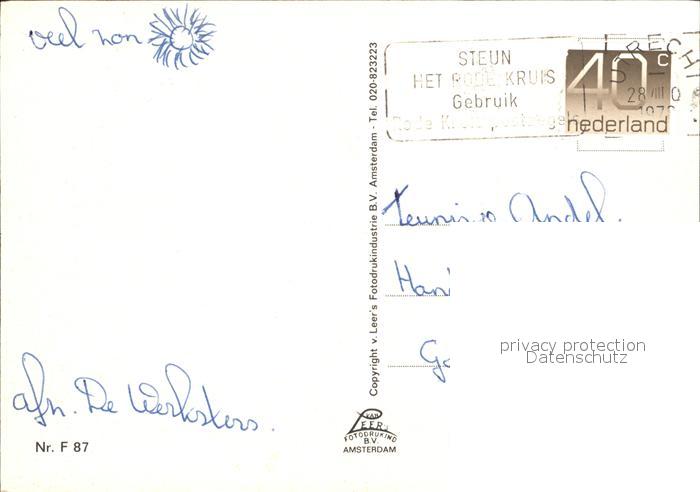 veel zon
STEUN
HET RODE KRUIS
Gebruik
Rode Kruispostzegels
40 c
nederland
UTRECH
28 VIII 0
197
Copyright v. Leer's Fotodrukindustrie B.V. Amsterdam - Tel. 020-823223
Andel.
Han
privacy protection
Datenschutz
afz. De Werksters.
Nr. F 87
VAN
LEER
FOTODRUKIND
B.V.
AMSTERDAM